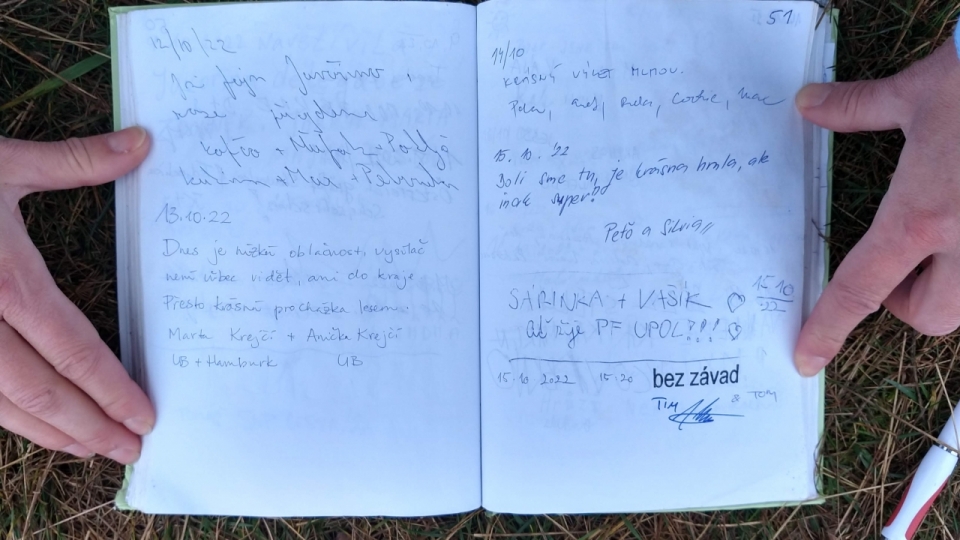 12/10/22
Javořina,
zase přijdeme
kafčo +
13.10.22
Dnes je nízká oblačnost, vysílač
není vůbec vidět, ani do kraje
Přesto krásná procházka lesem
Marta Krejčí + Anička Krejčí
UB + Hamburk UB
51
14/10
KRÁSNÝ VÝLET MLHOU.
15.10.'22
Boli sme tu, je krásna hmla, ale
inak super!
Peťo a Silvia
SÁRINKA + VAŠÍK ♡ 15.10
22
ať žije PF UPOL!!! ♡
15.10.2022 15:20 bez závad
TIM & TOM